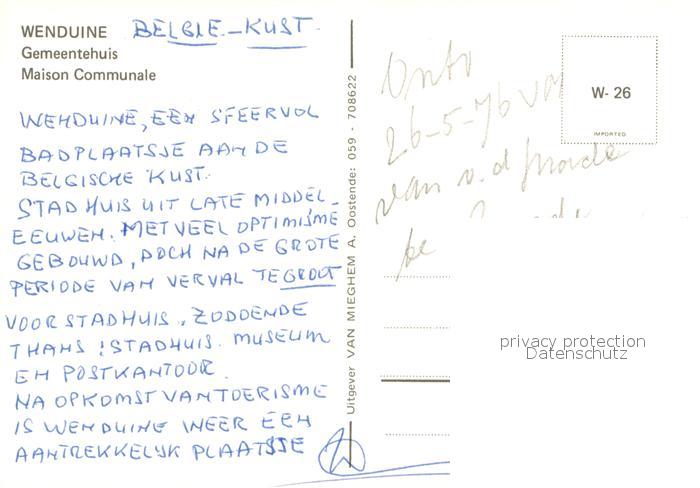 WENDUINE BELGIE - KUST.
Gemeentehuis
Maison Communale
WENDUINE, EEN SFEERVOL
BADPLAATSJE AAN DE
BELGISCHE KUST.
STADHUIS UIT LATE MIDDEL-
EEUWEN. MET VEEL OPTIMISME
GEBOUWD, DOCH NA DE GROTE
PERIODE VAN VERVAL TE GROOT
VOOR STADHUIS. ZODOENDE
THANS : STADHUIS. MUSEUM
EN POSTKANTOOR.
NA OPKOMST VAN TOERISME
IS WENDUINE WEER EEN
AANTREKKELIJK PLAATSJE
Uitgever VAN MIEGHEM A. Oostende: 059 - 708622
26-5-76 van
van v.d
W- 26
IMPORTED
privacy protection
Datenschutz